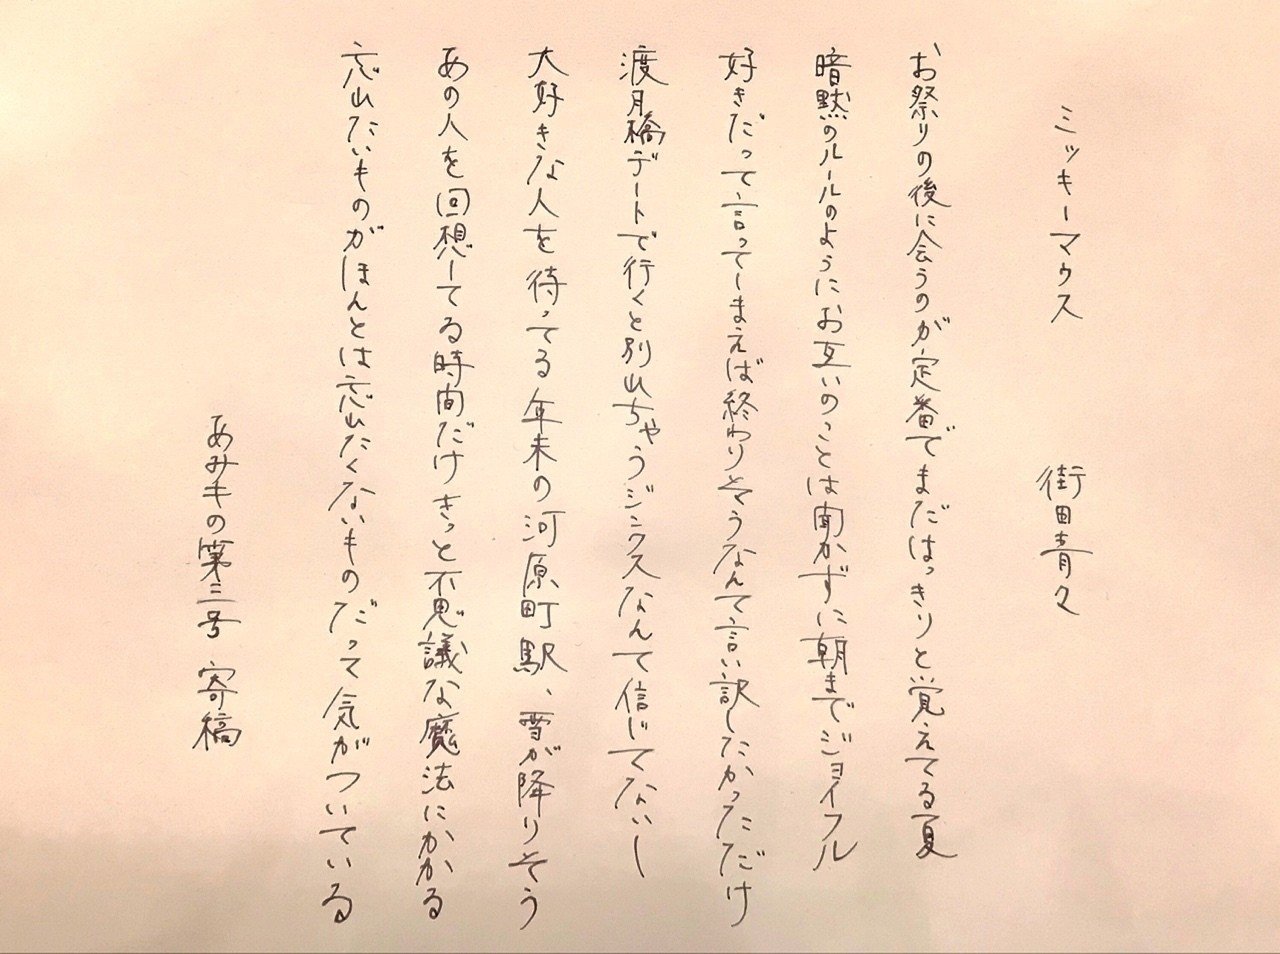 ミッキーマウス　街田青々
お祭りの後に会うのが定番でまだはっきりと覚えてる夏
暗黙のルールのようにお互いのことは聞かずに朝までジョイフル
好きだって言ってしまえば終わりそうなんて言い訳したかっただけ
渡月橋デートで行くと別れちゃうジンクスなんて信じてないし
大好きな人を待ってる年末の河原町駅、雪が降りそう
あの人を回想してる時間だけきっと不思議な魔法にかかる
忘れたいものがほんとは忘れたくないものだって気がついている
あみもの第三号　寄稿